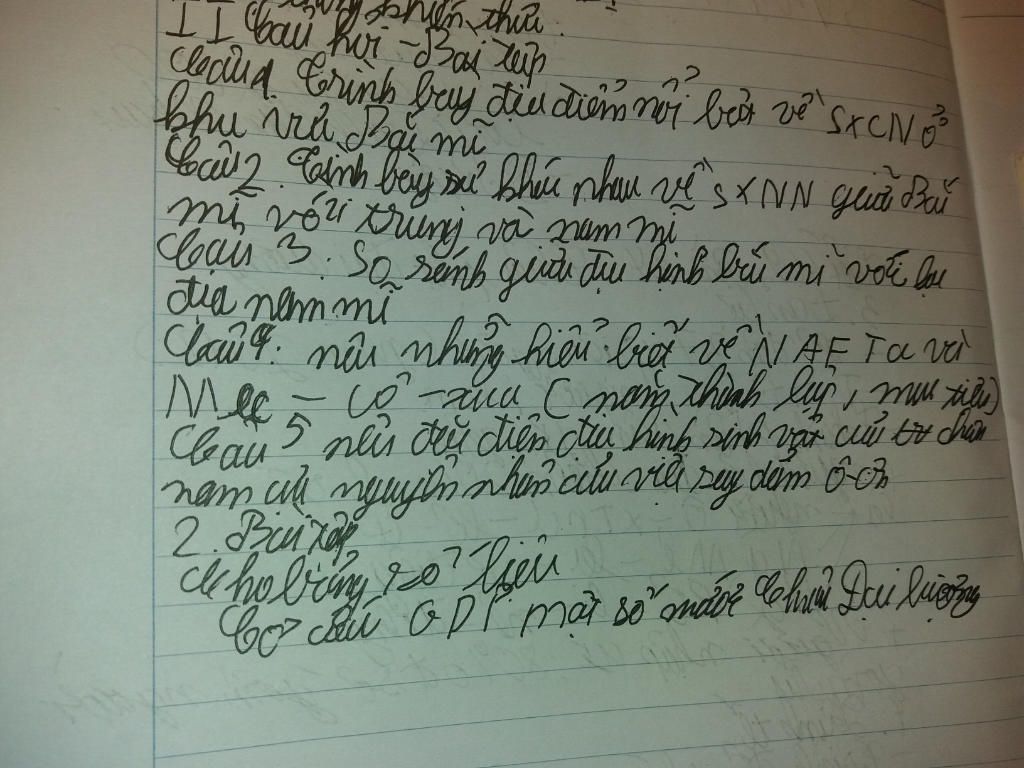 thức.
II Câu hỏi - Bài tập
Câu 1 Trình bày đặc điểm nổi bật về SXCN ở
khu vực Bắc mĩ
Câu 2. Trình bày sự khác nhau về SXNN giữa Bắc
mĩ với trung và nam mĩ
Câu 3: So sánh giữa địa hình bắc mĩ với lục
địa nam mĩ
Câu 4: nêu những hiểu biết về NAFTa và
Mec - cô - xua (năm thành lập, mục tiêu)
Câu 5 nêu đặc điểm địa hình sinh vật của châu
nam cực nguyên nhân của việc suy giảm Ô-Zôn
2. Bài tập
Cho bảng số liệu
Cơ cấu GDP một số nước Châu Đại Dương